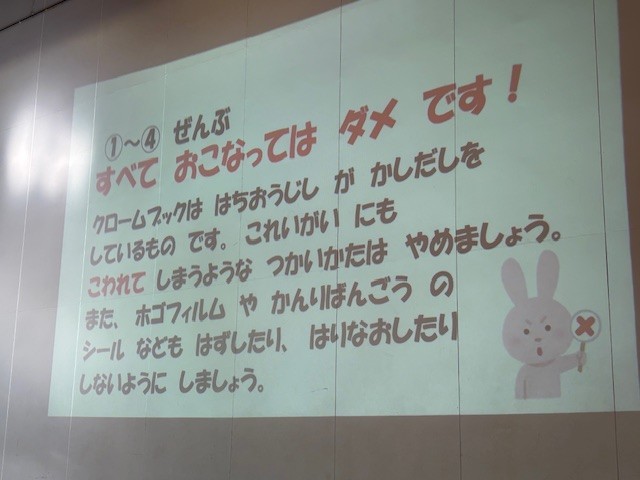 ①～④ ぜんぶ
すべて おこなっては ダメ です！
クロームブックは はちおうじし が かしだしを
しているもの です。これいがい にも
こわれて しまうような つかいかたは やめましょう。
また、ホゴフィルム や かんりばんごう の
シール なども はずしたり、はりなおしたり
しないように しましょう。